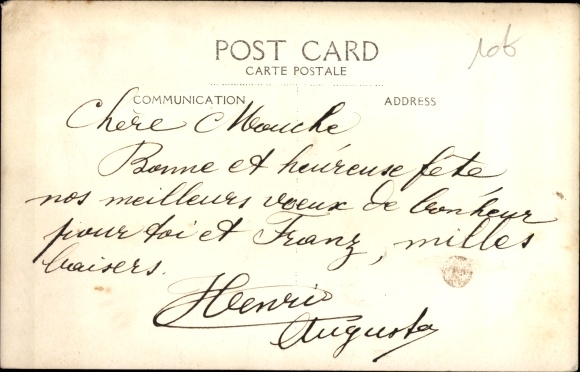 POST CARD
CARTE POSTALE
COMMUNICATION
ADDRESS
Chère Mouche
Bonne et heureuse fête
nos meilleurs voeux de bonheur
pour toi et Franz, milles
baisers.
Henri
Augusta